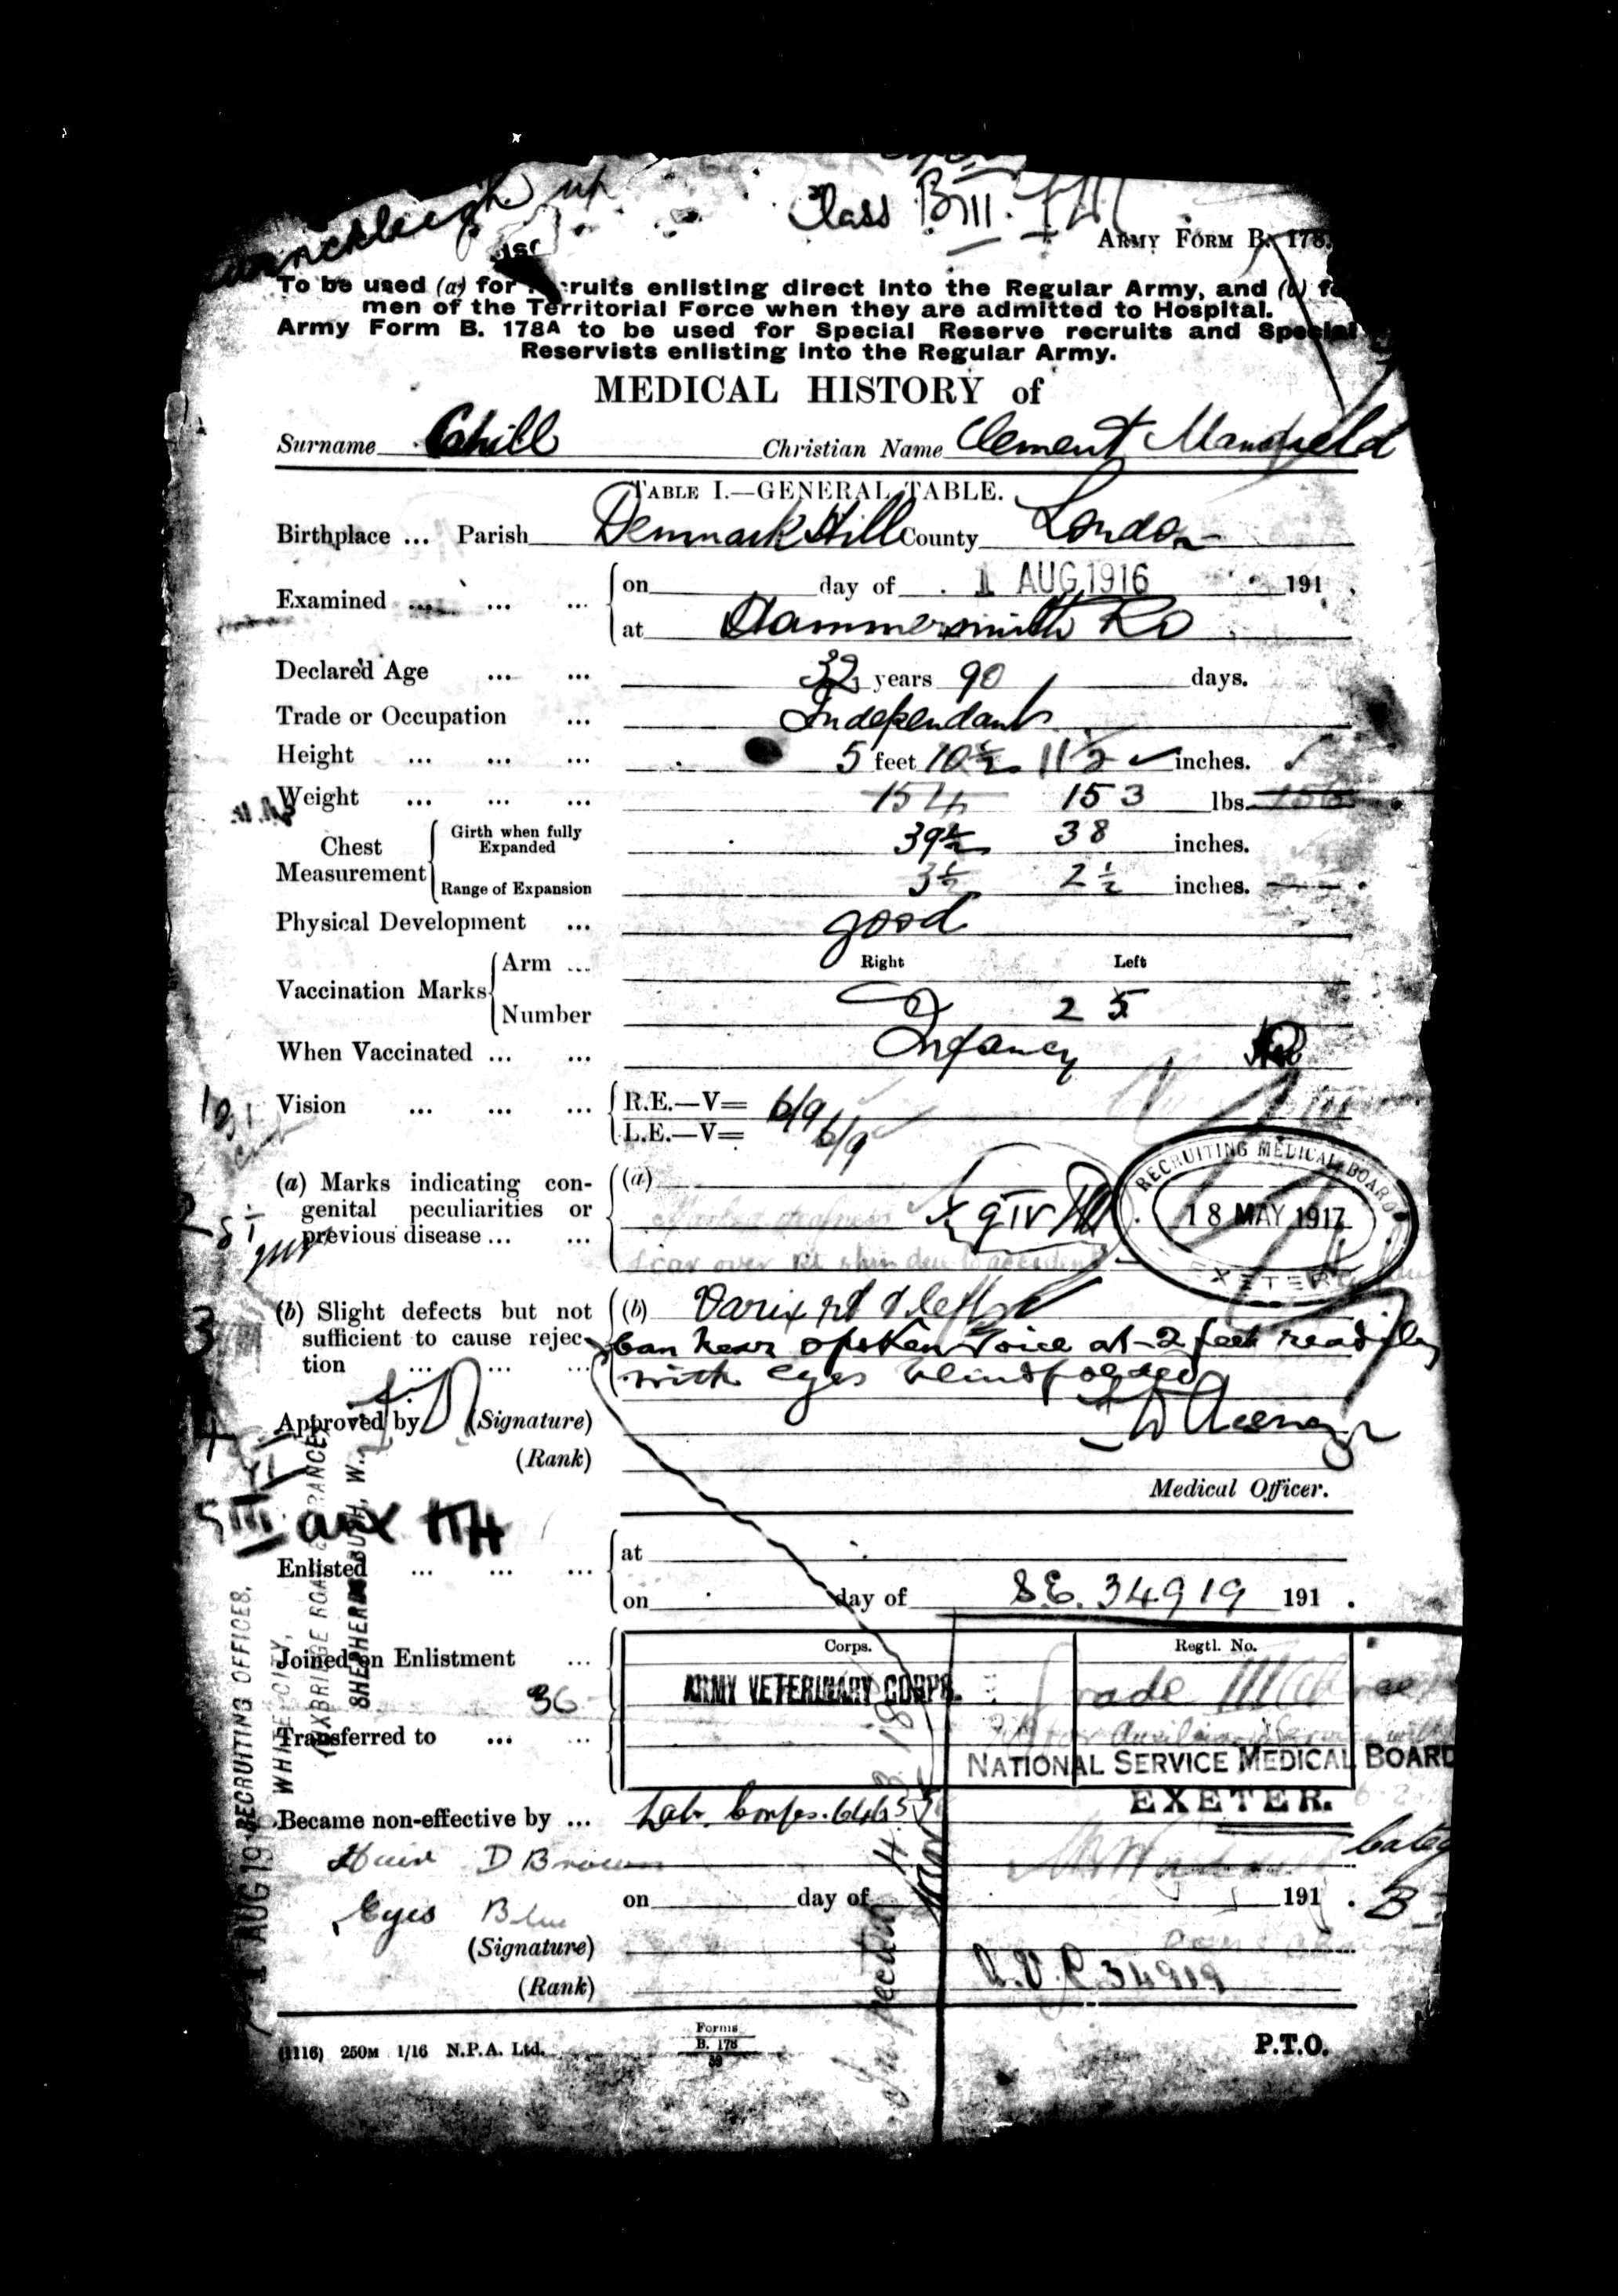 up
Class BIII.
ARMY FORM B. 178.
To be used (a) for Recruits enlisting direct into the Regular Army, and (b) for
men of the Territorial Force when they are admitted to Hospital.
Army Form B. 178A to be used for Special Reserve recruits and Special
Reservists enlisting into the Regular Army.
MEDICAL HISTORY of
Surname Cahill Christian Name Clement Mansfield
TABLE I.—GENERAL TABLE.
Birthplace ... Parish Denmark Hill County London
Examined ... ... ... on day of 1 AUG 1916 191
at Hammersmith Rd
Declared Age ... ... 32 years 90 days.
Trade or Occupation ... Independant
Height ... ... ... 5 feet 10½ 11½ inches.
Weight ... ... ... 154 153 lbs.
Chest Measurement Girth when fully Expanded 39½ 38 inches.
Range of Expansion 3½ 2½ inches.
Physical Development ... good
Vaccination Marks Arm ... Right Left
Number 2 5
When Vaccinated ... ... Infancy
Vision ... ... ... R.E.—V= 6/9
L.E.—V= 6/9
(a) Marks indicating congenital peculiarities or previous disease ... ... (a)
Marked deafness
scar over Rt shin due to accident
RECRUITING MEDICAL BOARD
18 MAY 1917
EXETER
(b) Slight defects but not sufficient to cause rejection ... ... ... (b) Varix rt & left
Can hear spoken voice at 2 feet readily
with eyes blindfolded
Approved by (Signature)
(Rank)
Medical Officer.
aux
Enlisted ... ... ... at
on day of S.E. 34919 191 .
Corps. Regtl. No.
Joined on Enlistment ... ARMY VETERINARY CORPS.
36
Transferred to ... ...
NATIONAL SERVICE MEDICAL BOARD
EXETER.
Became non-effective by ... Lab. Corps.
Hair D Brown
on day of 191 .
Eyes Blue
(Signature)
(Rank) A.V.C. 34919
RECRUITING OFFICES,
WHITE CITY,
UXBRIDGE ROAD ENTRANCE,
SHEPHERDS BUSH, W.
1 AUG 191
(1116) 250M 1/16 N.P.A. Ltd.
Forms
B. 178
P.T.O.